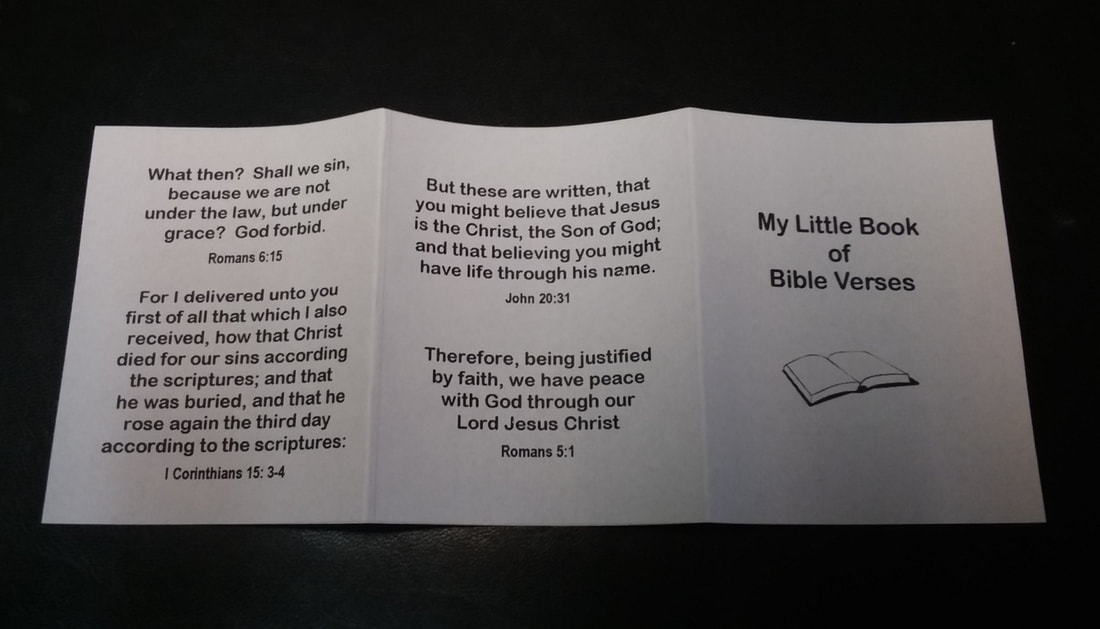 What then? Shall we sin,
because we are not
under the law, but under
grace? God forbid.
Romans 6:15
For I delivered unto you
first of all that which I also
received, how that Christ
died for our sins according
the scriptures; and that
he was buried, and that he
rose again the third day
according to the scriptures:
I Corinthians 15: 3-4
But these are written, that
you might believe that Jesus
is the Christ, the Son of God;
and that believing you might
have life through his name.
John 20:31
Therefore, being justified
by faith, we have peace
with God through our
Lord Jesus Christ
Romans 5:1
My Little Book
of
Bible Verses